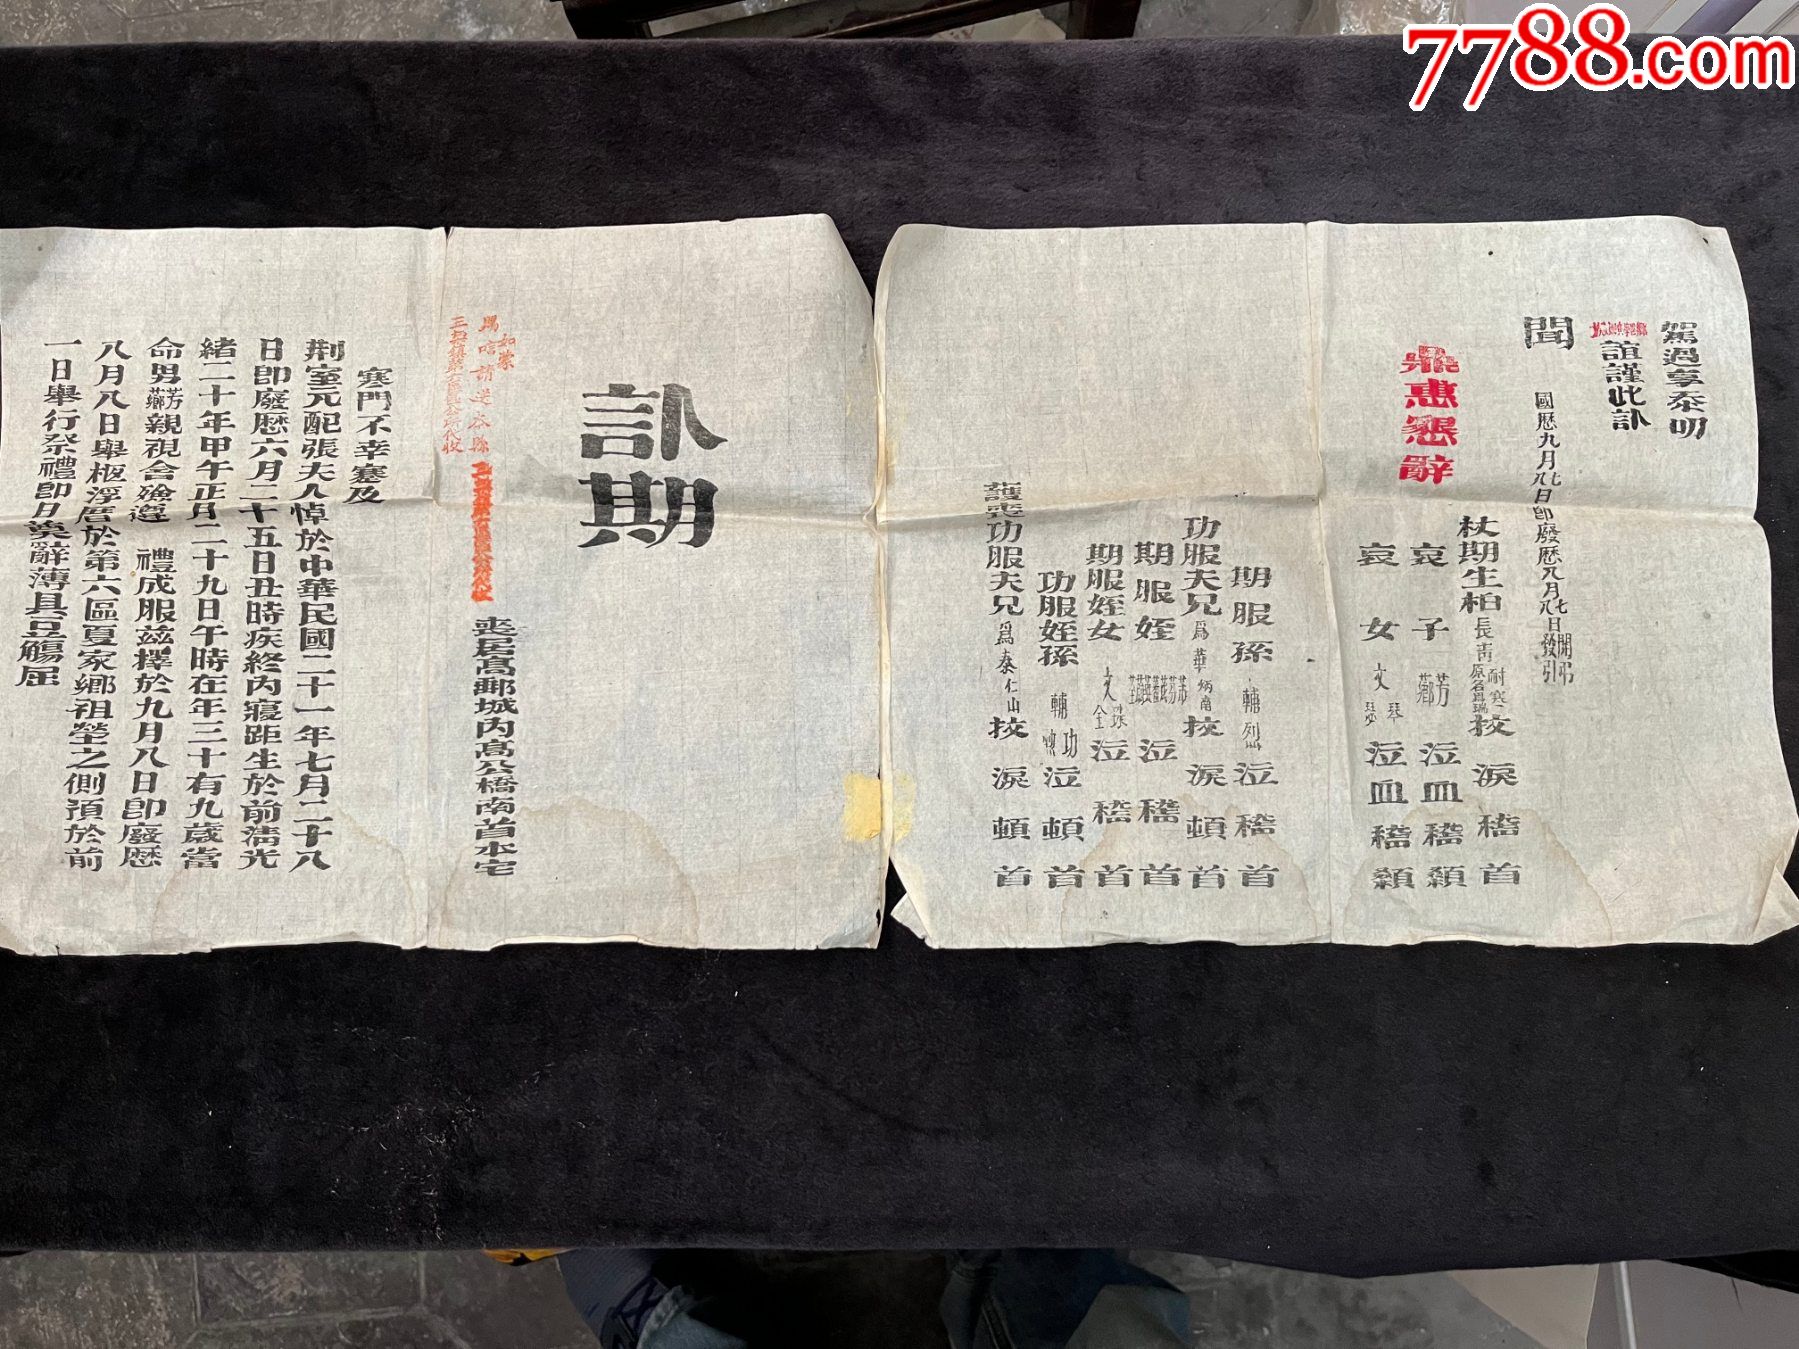 7788.com
訃期
喪居高郵城内高公橋南首本宅
如蒙
賜唁請送本縣
三垛鎮第六區公所代收
寒門不幸蹇及
荆室元配張夫人悼於中華民國二十一年七月二十八
日即廢歷六月二十五日丑時疾終内寢距生於前清光
緒二十年甲午正月二十九日午時在年三十有九歲當
命男芳薌親視含殮遵禮成服茲擇於九月八日即廢歷
八月八日舉柩浮厝於第六區夏家鄉祖塋之側預於前
一日舉行祭禮即日輓辭薄具豆觴屈
駕過享泰叨
誼謹此訃
聞
國歷九月七八日即廢歷八月七八日開弔發引
鼎惠懇辭
杖期生柏長青耐寒原名 抆淚稽首
哀子芳薌泣血稽顙
哀女文琴瑟泣血稽顙
期服孫輔烈泣稽首
功服夫兄爲華炳南抆淚頓首
期服姪 泣稽首
期服姪女文珠全泣稽首
功服姪孫輔功泣頓首
護喪功服夫兄爲泰仁山抆淚頓首